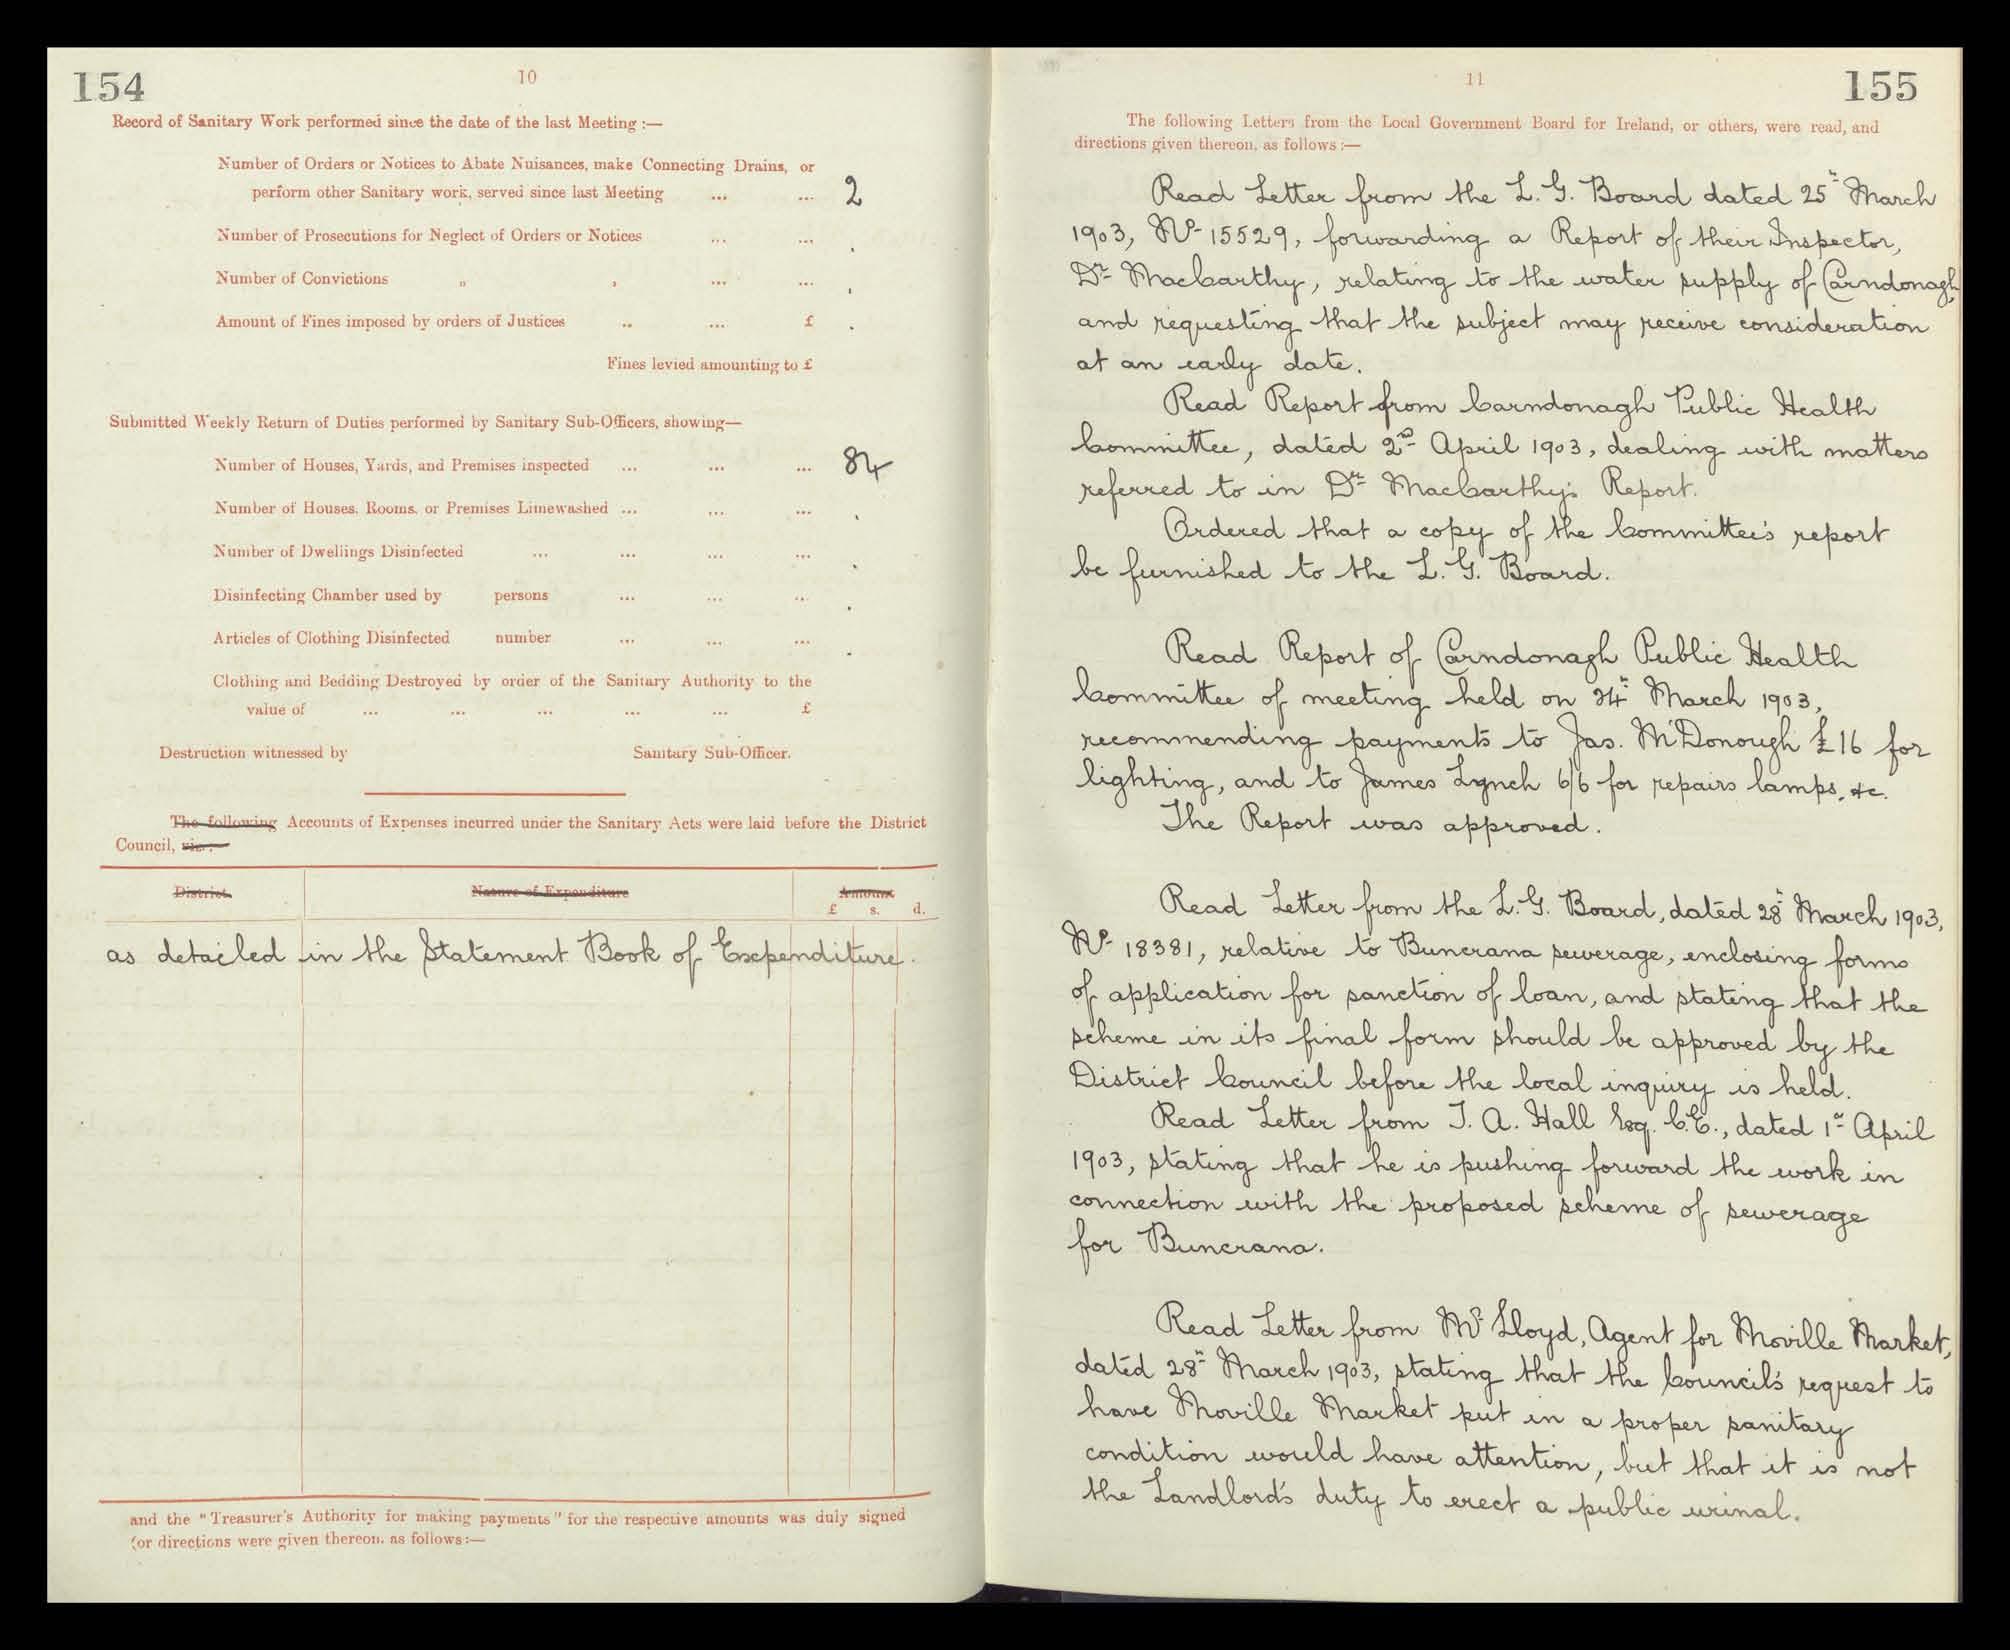 154
10
Record of Sanitary Work performed since the date of the last Meeting :—
Number of Orders or Notices to Abate Nuisances, make Connecting Drains, or
perform other Sanitary work, served since last Meeting ... ... 2
Number of Prosecutions for Neglect of Orders or Notices ... ... .
Number of Convictions „ , ... ... .
Amount of Fines imposed by orders of Justices .. ... £ .
Fines levied amounting to £
Submitted Weekly Return of Duties performed by Sanitary Sub-Officers, showing—
Number of Houses, Yards, and Premises inspected ... ... ... 84
Number of Houses. Rooms. or Premises Limewashed ... ... ... .
Number of Dwellings Disinfected ... ... ... ... .
Disinfecting Chamber used by persons ... ... ... .
Articles of Clothing Disinfected number ... ... ... .
Clothing and Bedding Destroyed by order of the Sanitary Authority to the
value of ... ... ... ... ... £
Destruction witnessed by Sanitary Sub-Officer.
The following Accounts of Expenses incurred under the Sanitary Acts were laid before the District
Council, viz. :—
District. Nature of Expenditure Amount
£ s. d.
as detailed in the Statement Book of Expenditure.
and the "Treasurer's Authority for making payments" for the respective amounts was duly signed
(or directions were given thereon. as follows:—
11
155
The following Letters from the Local Government Board for Ireland, or others, were read, and
directions given thereon, as follows :—
Read Letter from the L. G. Board dated 25th March
1903, No 15529, forwarding a Report of their Inspector,
Dr MacCarthy, relating to the water supply of Carndonagh,
and requesting that the subject may receive consideration
at an early date.
Read Report from Carndonagh Public Health
Committee, dated 2nd April 1903, dealing with matters
referred to in Dr MacCarthy's Report.
Ordered that a copy of the Committee's report
be furnished to the L. G. Board.
Read Report of Carndonagh Public Health
Committee of meeting held on 24th March 1903,
recommending payments to Jas. McDonough £16 for
lighting, and to James Lynch 6/6 for repairs lamps, &c.
The Report was approved.
Read Letter from the L. G. Board, dated 28th March 1903,
No 18381, relative to Buncrana sewerage, enclosing forms
of application for sanction of loan, and stating that the
scheme in its final form should be approved by the
District Council before the local inquiry is held.
Read Letter from J. A. Hall Esq. C.E., dated 1st April
1903, stating that he is pushing forward the work in
connection with the proposed scheme of sewerage
for Buncrana.
Read Letter from Mr Lloyd, Agent for Moville Market,
dated 28th March 1903, stating that the Council's request to
have Moville Market put in a proper sanitary
condition would have attention, but that it is not
the Landlord's duty to erect a public urinal.